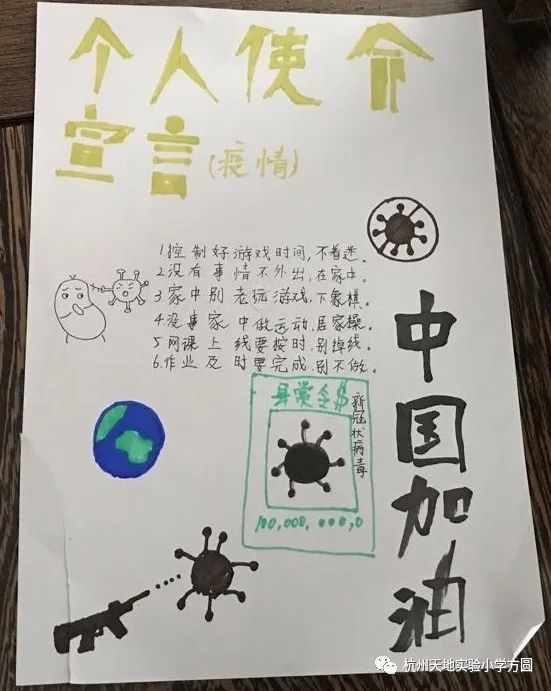 个人使命
宣言(疫情)
1.控制好游戏时间,不着迷。
2.没有事情不外出,在家中。
3.家中别老玩游戏,下象棋。
4.没事家中做运动,居家操。
5.网课上线要按时,别掉线。
6.作业及时要完成,别不做。
县赏令$
新冠状病毒
100,000,000,0
中国加油
杭州天地实验小学方圆